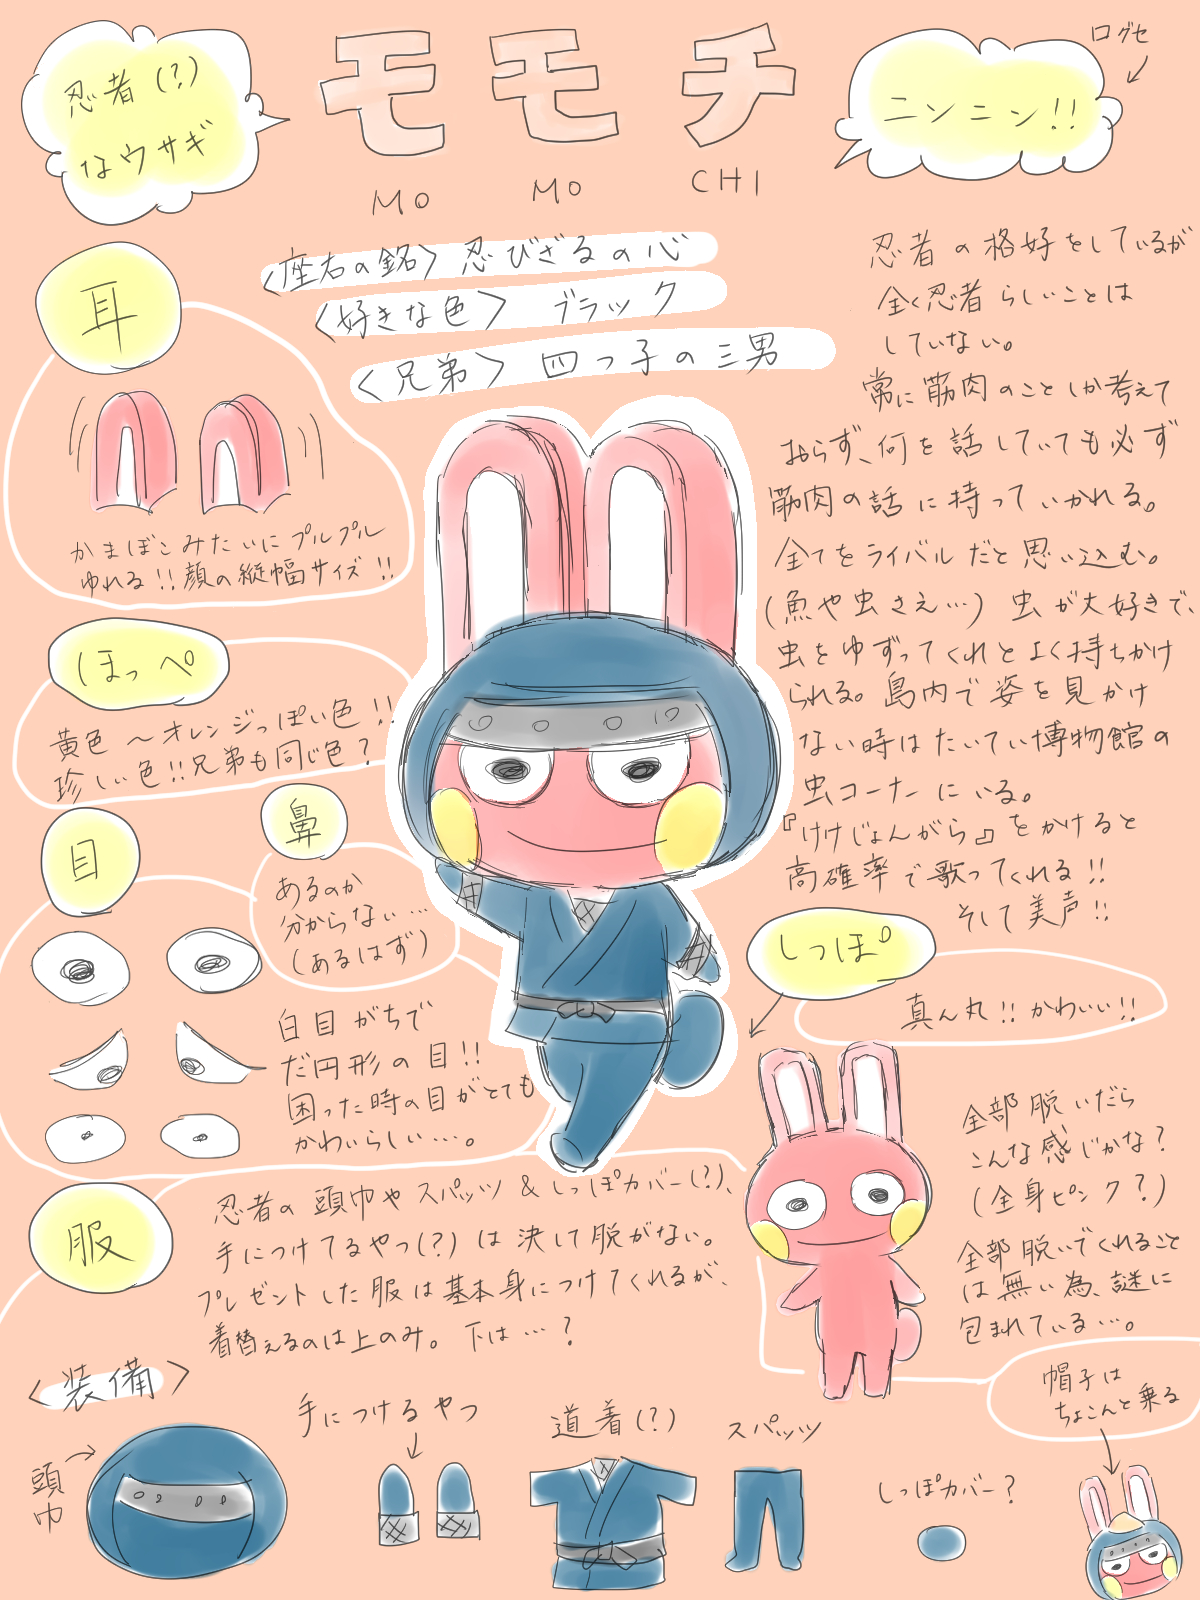 忍者(?)
なウサギ
モモチ
MO MO CHI
ログセ
ニンニン!!
<座右の銘> 忍びざるの心
<好きな色> ブラック
<兄弟> 四つ子の三男
忍者の格好をしているが
全く忍者らしいことは
していない。
常に筋肉のことしか考えて
おらず、何を話していても必ず
筋肉の話に持っていかれる。
全てをライバルだと思い込む。
(魚や虫さえ…) 虫が大好きで、
虫をゆずってくれとよく持ちかけ
られる。島内で姿を見かけ
ない時はたいてい博物館の
虫コーナーにいる。
『けけじょんがら』をかけると
高確率で歌ってくれる!!
そして美声!!
耳
かまぼこみたいにプルプル
ゆれる!!顔の縦幅サイズ!!
ほっぺ
黄色〜オレンジっぽい色!!
珍しい色!!兄弟も同じ色?
鼻
あるのか
分からない…
(あるはず)
目
白目がちで
だ円形の目!!
困った時の目がとても
かわいらしい…。
しっぽ
真ん丸!!かわいい!!
全部脱いだら
こんな感じかな?
(全身ピンク?)
全部脱いでくれること
は無い為、謎に
包まれている…。
服
忍者の頭巾やスパッツ&しっぽカバー(?)、
手につけてるやつ(?)は決して脱がない。
プレゼントした服は基本身につけてくれるが、
着替えるのは上のみ。下は…?
<装備>
頭巾
手につけるやつ
道着(?)
スパッツ
しっぽカバー?
帽子は
ちょこんと乗る